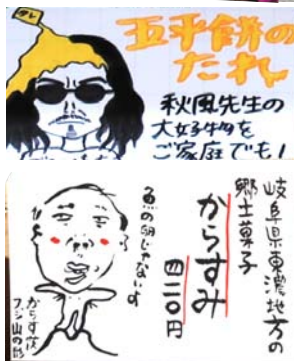 タレ
五平餅の
たれ
秋風先生の
大好物を
ご家庭でも!
岐阜県東濃地方の
郷土菓子
からすみ
四二〇円
魚の卵じゃないす
からすは
フジ山の形